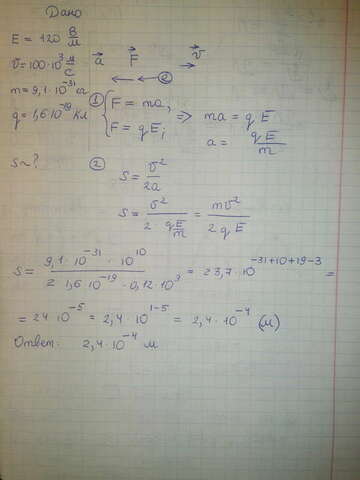 Дано
E = 120 В/м
v = 100·10³ м/с
m = 9,1·10⁻³¹ кг
q = 1,6·10⁻¹⁹ Кл
S – ?
a⃗ F⃗ v⃗
① { F = ma, F = qE; => ma = qE
a = qE/m
② S = v²/2a
S = v²/(2·qE/m) = mv²/2qE
S = (9,1·10⁻³¹·10¹⁰)/(2·1,6·10⁻¹⁹·0,12·10³) = 23,7·10⁻³¹⁺¹⁰⁺¹⁹⁻³ =
= 24·10⁻⁵ = 2,4·10¹⁻⁵ = 2,4·10⁻⁴ (м)
Ответ: 2,4·10⁻⁴ м